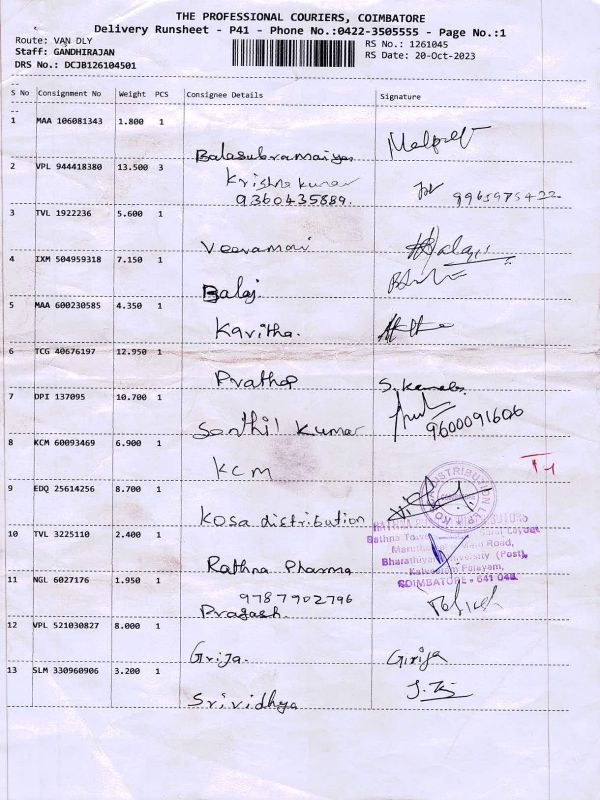 THE PROFESSIONAL COURIERS, COIMBATORE
Delivery Runsheet - P41 - Phone No.:0422-3505555 - Page No.:1
Route: VAN DLY
Staff: GANDHIRAJAN
DRS No.: DCJB126104501
RS No.: 1261045
RS Date: 20-Oct-2023
S No Consignment No Weight PCS Consignee Details Signature
1 MAA 106081343 1.800 1
Balasubramaiyan
2 VPL 944418380 13.500 3
Krishna kumar
9360435889. 9965975422
3 TVL 1922236 5.600 1
Veeramani
4 IXM 504959318 7.150 1
Balaj.
5 MAA 600230585 4.350 1
Kavitha.
6 TCG 40676197 12.950 1
Prathap
7 DPI 137095 10.700 1
Senthil kumar 9600091606
8 KCM 60093469 6.900 1
KCM
9 EDQ 25614256 8.700 1
Kosa distribution
DISTRIBUTION
10 TVL 3225110 2.400 1
Rathna Pharma
Road,
Bharathiyar University (Post),
Palayam,
COIMBATORE - 641 041
11 NGL 6027176 1.950 1
9787902796
Pragash.
12 VPL 521030827 8.000 1
Grija. Girija
13 SLM 330960906 3.200 1
Srividhya